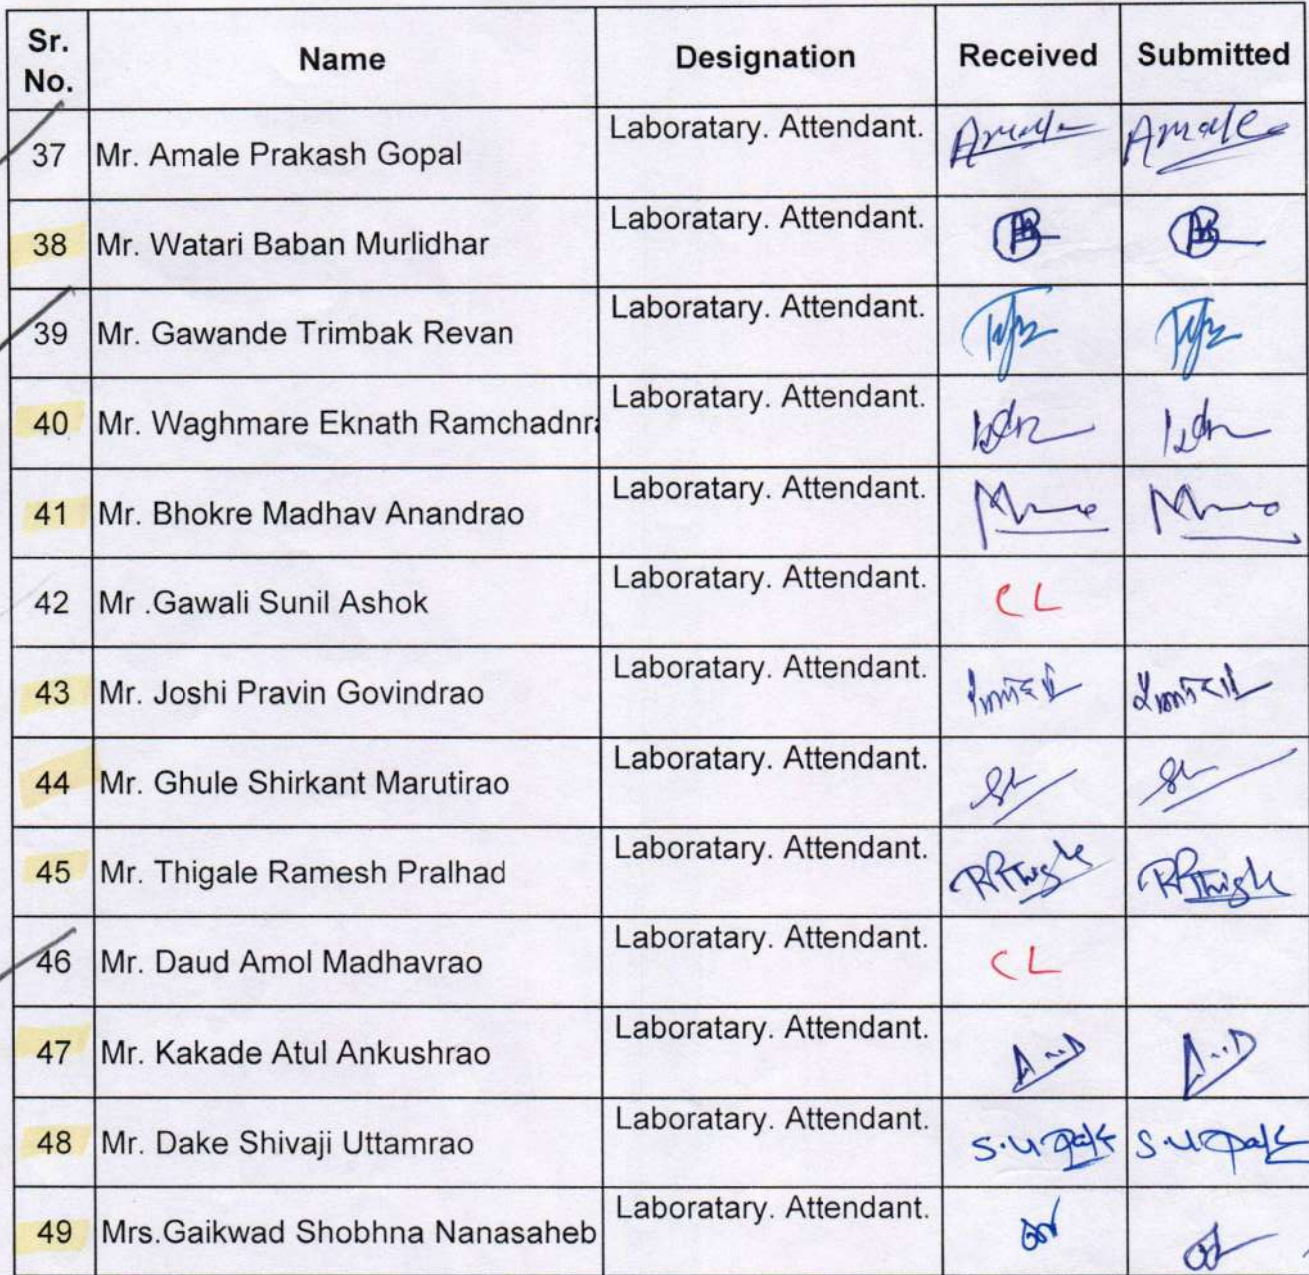 Sr. No. Name Designation Received Submitted
37 Mr. Amale Prakash Gopal Laboratary. Attendant. Amale Amale
38 Mr. Watari Baban Murlidhar Laboratary. Attendant.
39 Mr. Gawande Trimbak Revan Laboratary. Attendant.
40 Mr. Waghmare Eknath Ramchadnra Laboratary. Attendant.
41 Mr. Bhokre Madhav Anandrao Laboratary. Attendant.
42 Mr .Gawali Sunil Ashok Laboratary. Attendant. CL
43 Mr. Joshi Pravin Govindrao Laboratary. Attendant.
44 Mr. Ghule Shirkant Marutirao Laboratary. Attendant.
45 Mr. Thigale Ramesh Pralhad Laboratary. Attendant.
46 Mr. Daud Amol Madhavrao Laboratary. Attendant. CL
47 Mr. Kakade Atul Ankushrao Laboratary. Attendant.
48 Mr. Dake Shivaji Uttamrao Laboratary. Attendant.
49 Mrs.Gaikwad Shobhna Nanasaheb Laboratary. Attendant.